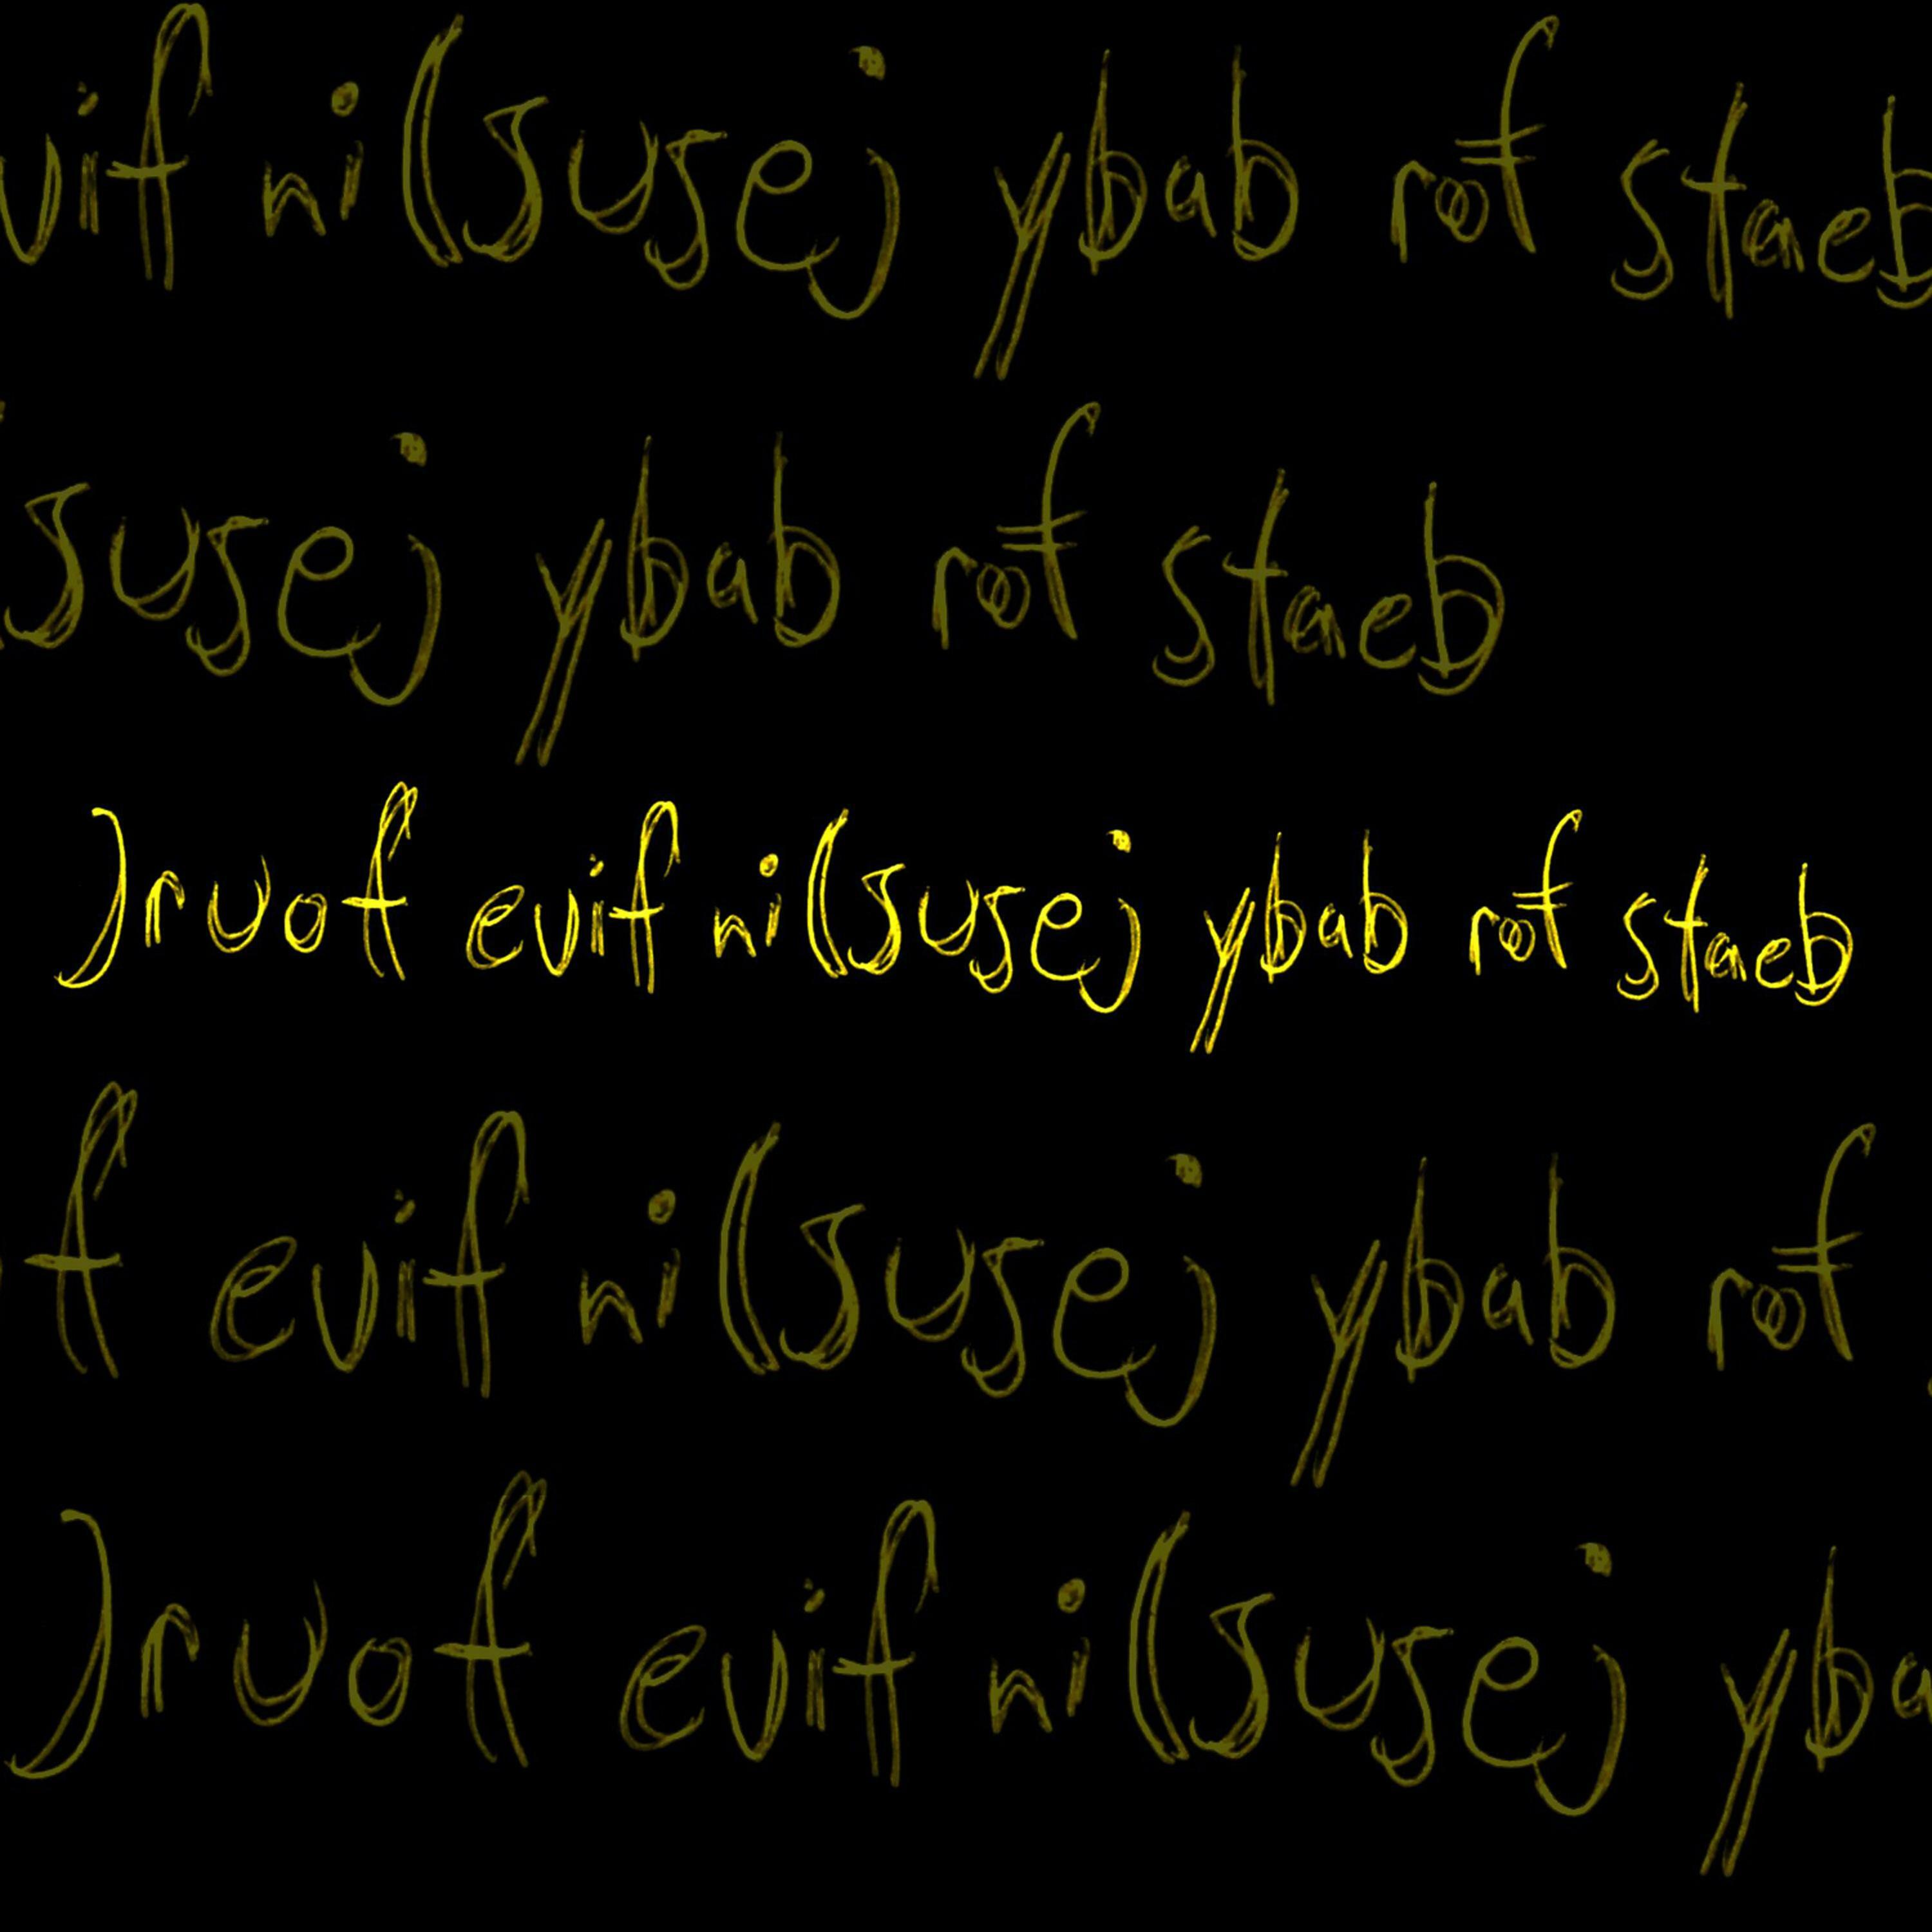 vif ni(susej ybab rof staeb
susej ybab rof staeb
)ruof evif ni(susej ybab rof staeb
f evif ni(susej ybab rof
)ruof evif ni(susej yba